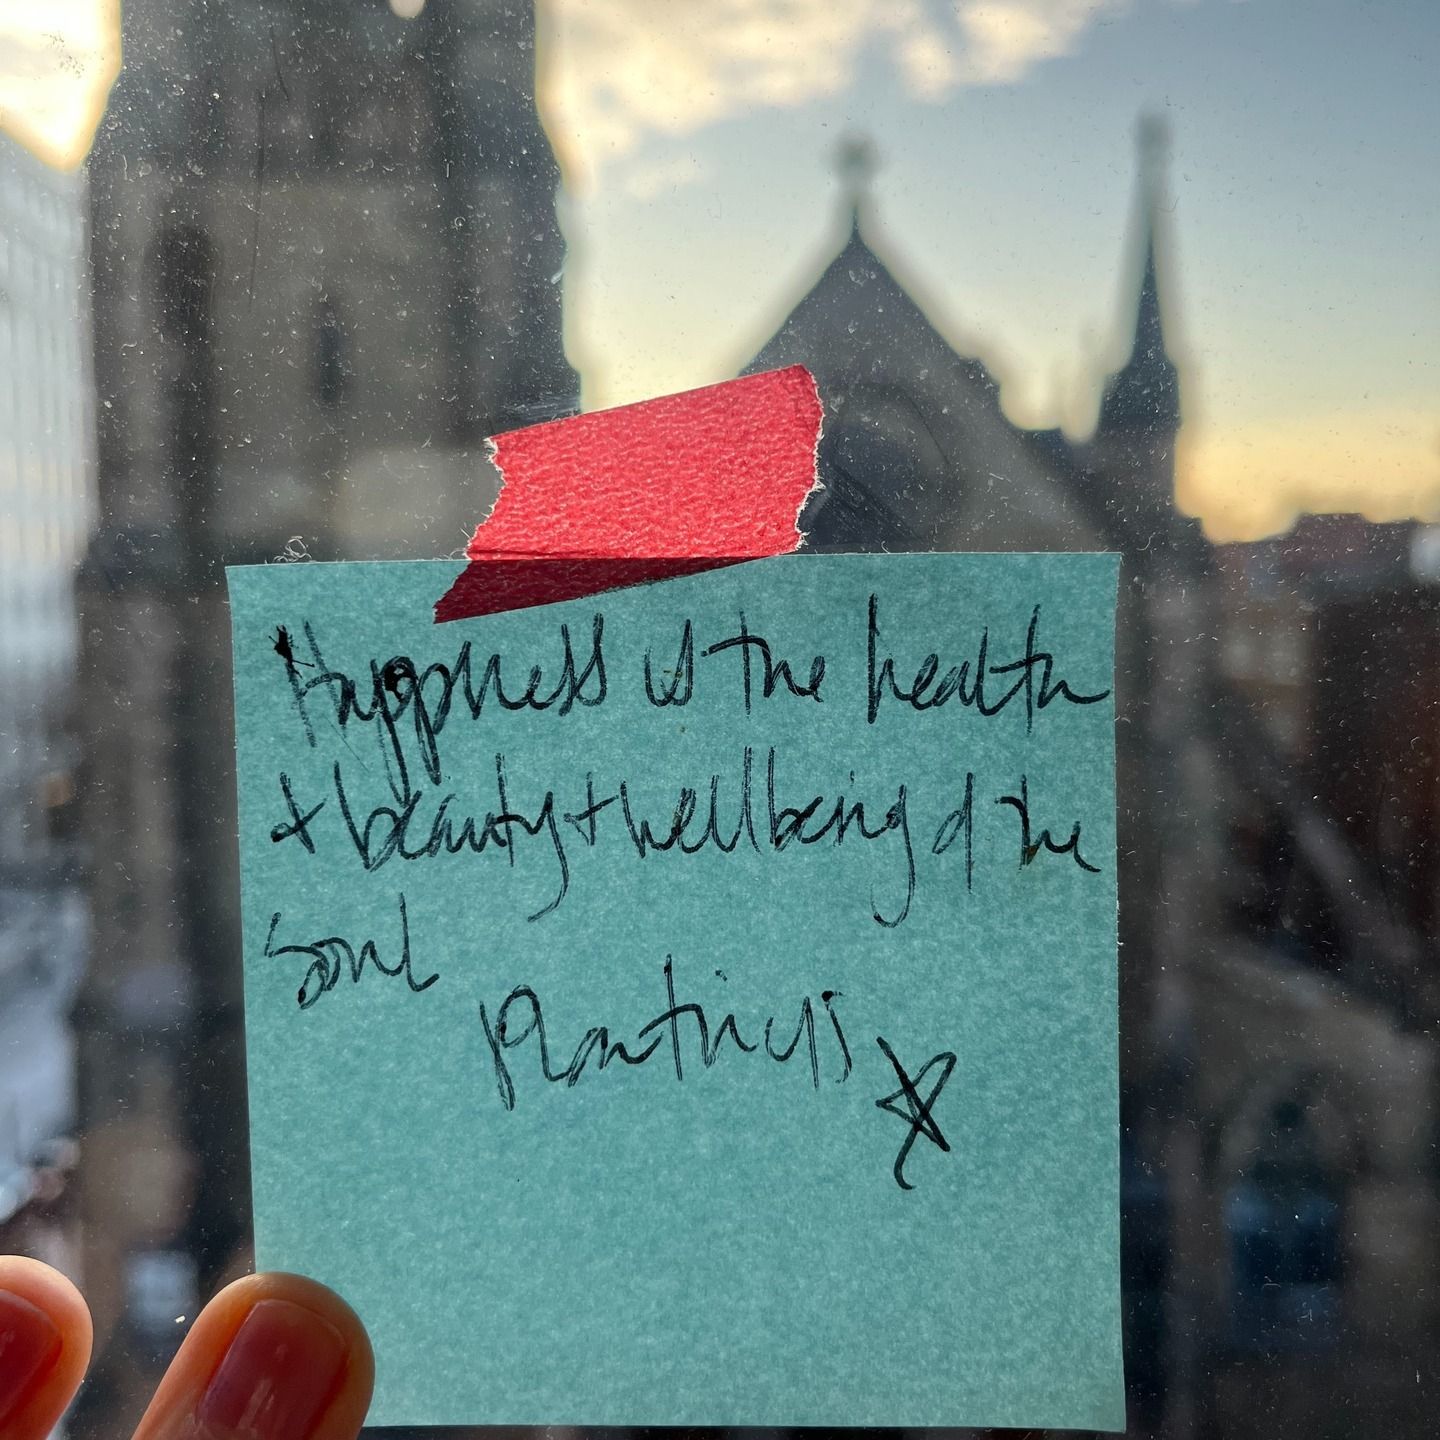 Happness is the health
+ beauty + wellbeing of the
soul
Plantinus